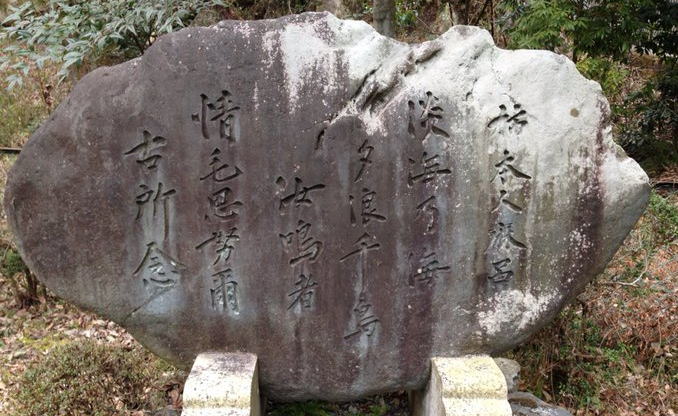 柿本人麻呂
淡海乃海
夕浪千鳥
汝鳴者
情毛思努爾
古所念